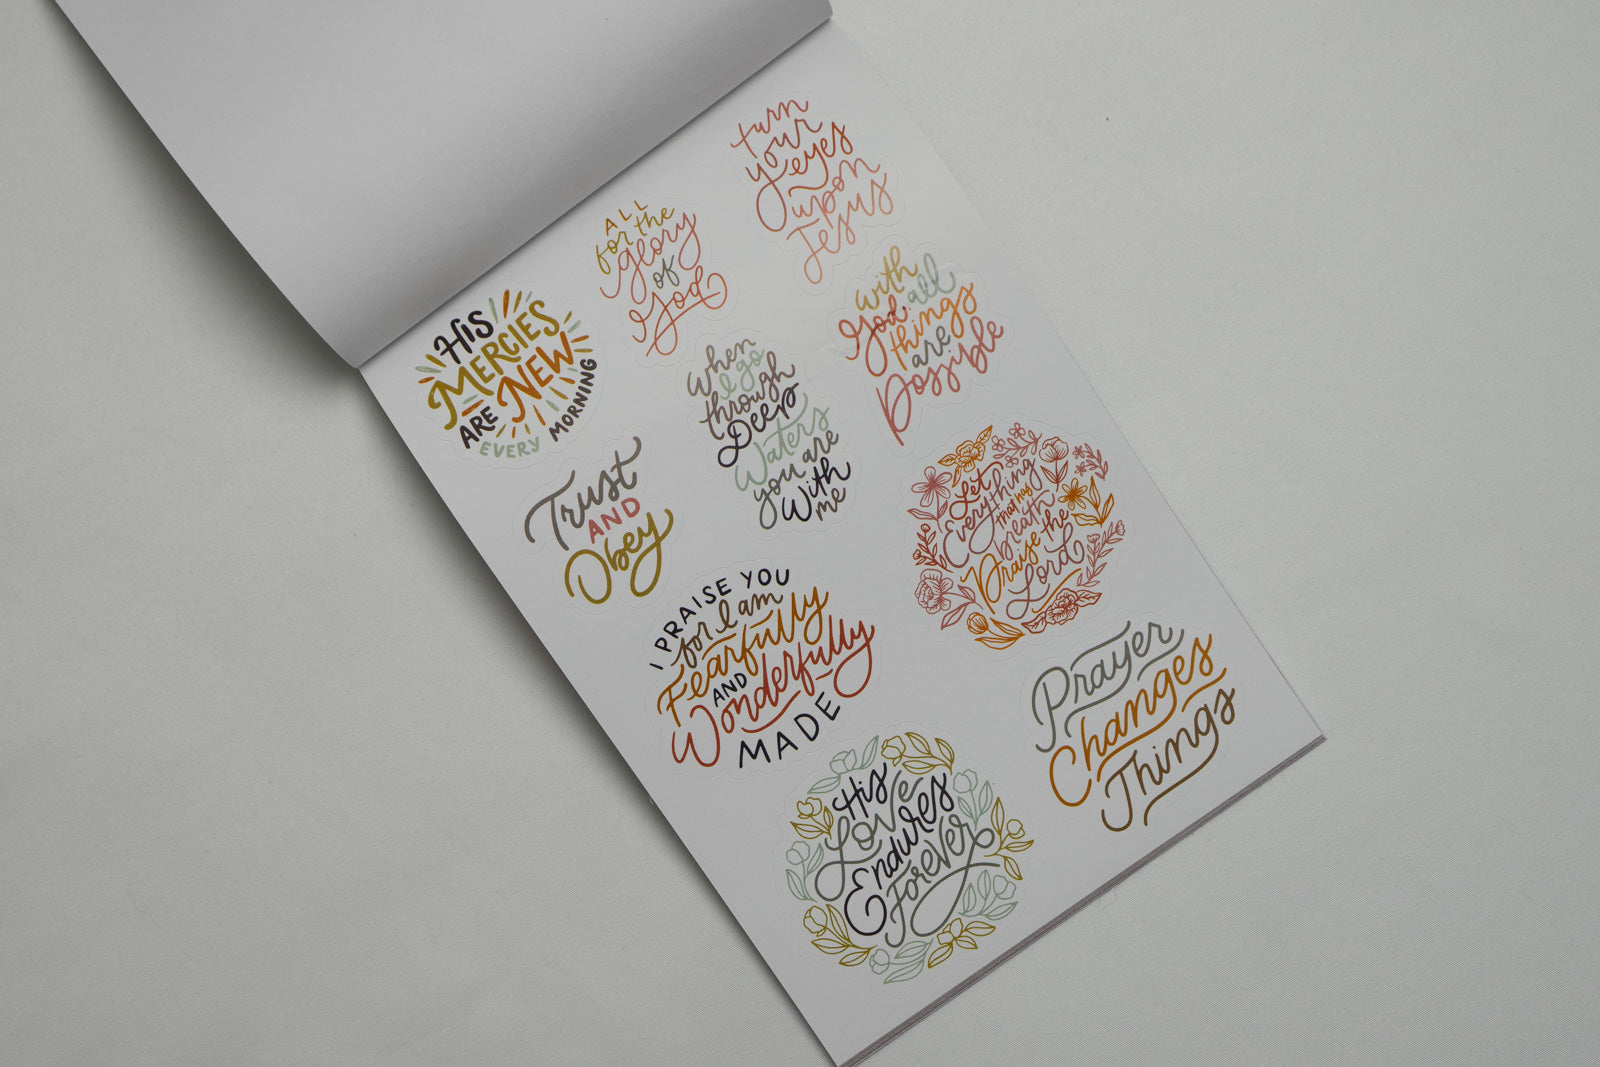 turn
your
eyes
upon
Jesus
ALL
for the
glory
of
God
with
God all
things
are
Possible
His
MERCIES
ARE NEW
EVERY MORNING
When
I go
through
Deep
Waters
you are
With
me
Trust
AND
Obey
Let
Everything
that has
breath
Praise the
Lord
I PRAISE YOU
for I am
Fearfully
AND
Wonderfully
MADE
Prayer
Changes
Things
His
Love
Endures
Forever